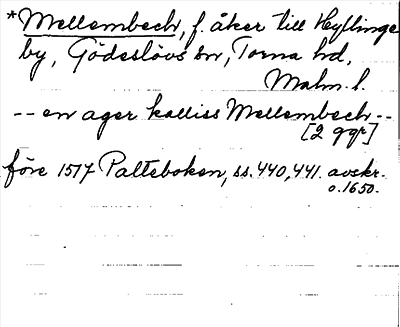 *Mellembech, f. åker till Hyllinge
by, Gödeslövs sn, Torna hd,
Malm. l.
-- en ager kalliss Mellembech --
[2 ggr]
före 1517 Palteboken, ss. 440, 441. avskr.
o. 1650.